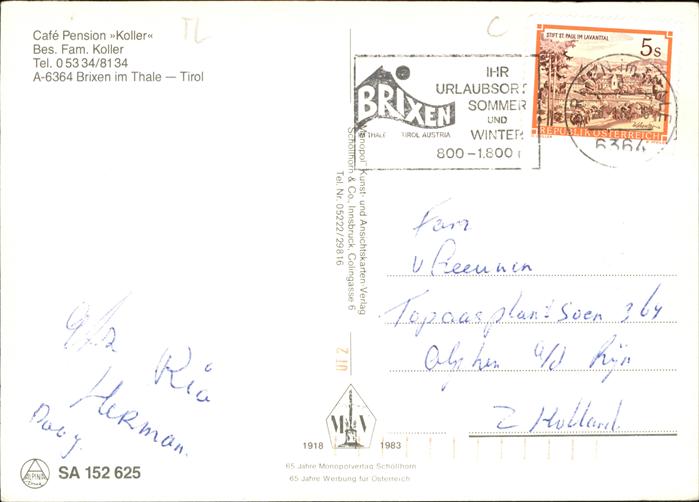 Café Pension »Koller«
Bes. Fam. Koller
Tel. 0 53 34/81 34
A-6364 Brixen im Thale — Tirol
TL
C
BRIXEN
IM THALE TIROL AUSTRIA
IHR
URLAUBSOR
SOMMER
UND
WINTER
800–1.800
STIFT ST. PAUL IM LAVANTTAL
5s
REPUBLIK ÖSTERREICH
6364
"Monopol" Kunst- und Ansichtskarten-Verlag
Schöllhorn & Co., Innsbruck, Colingasse 6
Tel. Nr. 05222/29816
UT 2
Fam
v Leeuwen
Topaasplantsoen 364
Alphen a/d Rijn
Z Holland
Ria
Herman
M V
1918 1983
65 Jahre Monopolverlag Schöllhorn
65 Jahre Werbung für Österreich
ALPINA
SA 152 625